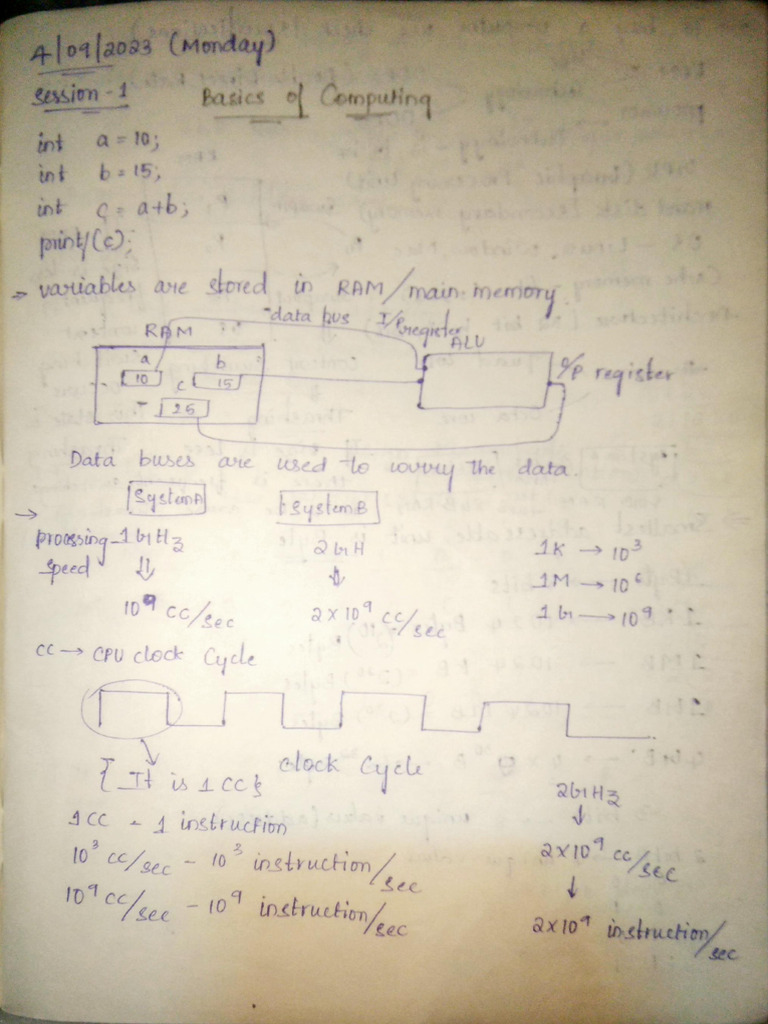 4/09/2023 (Monday)
Session - 1
Basics of Computing
int a = 10;
int b = 15;
int c = a+b;
print/(c);
→ variables are stored in RAM/main memory
data bus I/P register
RAM ALU
a b
10 c 15
25
O/P register
Data buses are used to carry the data.
System A System B
→
processing speed - 1 GHz 2 GH 1K → 10³
⇓ ⇓ 1M → 10⁶
10⁹ cc/sec 2 x 10⁹ cc/sec 1G → 10⁹
CC → CPU clock Cycle
clock Cycle
{ It is 1 CC }
2GHz
↓
1CC - 1 instruction
2x10⁹ cc/sec
10³ cc/sec - 10³ instruction/sec
↓
10⁹ cc/sec - 10⁹ instruction/sec
2x10⁹ instruction/sec